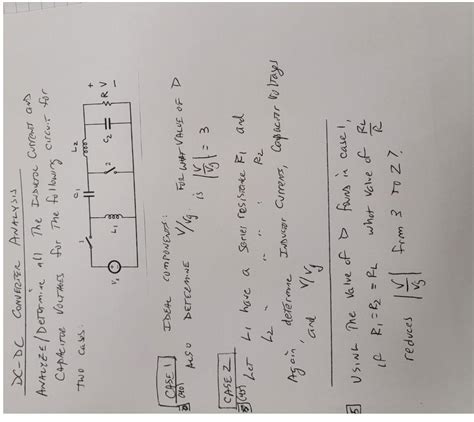 DC-DC CONVERTER ANALYSIS
ANALYZE/DETERMINE all THE INDUCTOR CURRENT AND
CAPACITOR VOLTAGES for THE following CIRCUIT for
TWO CASES.
1 C1 L2 +
L1 2 C2 R V
V1 -
CASE 1 IDEAL COMPONENTS:
ALSO DETERMINE V/Vg FOR WHAT VALUE OF D
is |V/Vg| = 3
CASE 2
LET L1 have a series resistance R1 and
L2 " " " " R2
Again determine INDUCTOR CURRENTS, CAPACITOR VOLTAGES
and V/Vg
5 USING THE Value of D found in case 1,
if R1 = R2 = RL what value of RL/R
reduces |V/Vg| from 3 to 2?